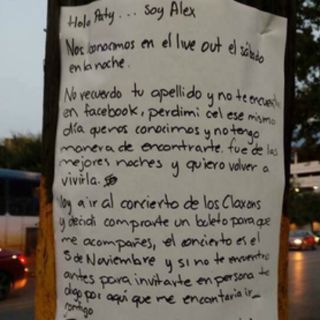 Hola Paty... Soy Alex
Nos conocimos en el live out el sábado
en la noche.
No recuerdo tu apellido y no te encuentro
en facebook, perdí mi cel ese mismo
día que nos conocimos y no tengo
manera de encontrarte. fue de las
mejores noches y quiero volver a
vivirla.
Voy a ir al concierto de los Claxons
y decidí comprarte un boleto para que
me acompañes, el concierto es el
5 de Noviembre y si no te encuentro
antes para invitarte en persona te
digo por aquí que me encantaría ir
contigo